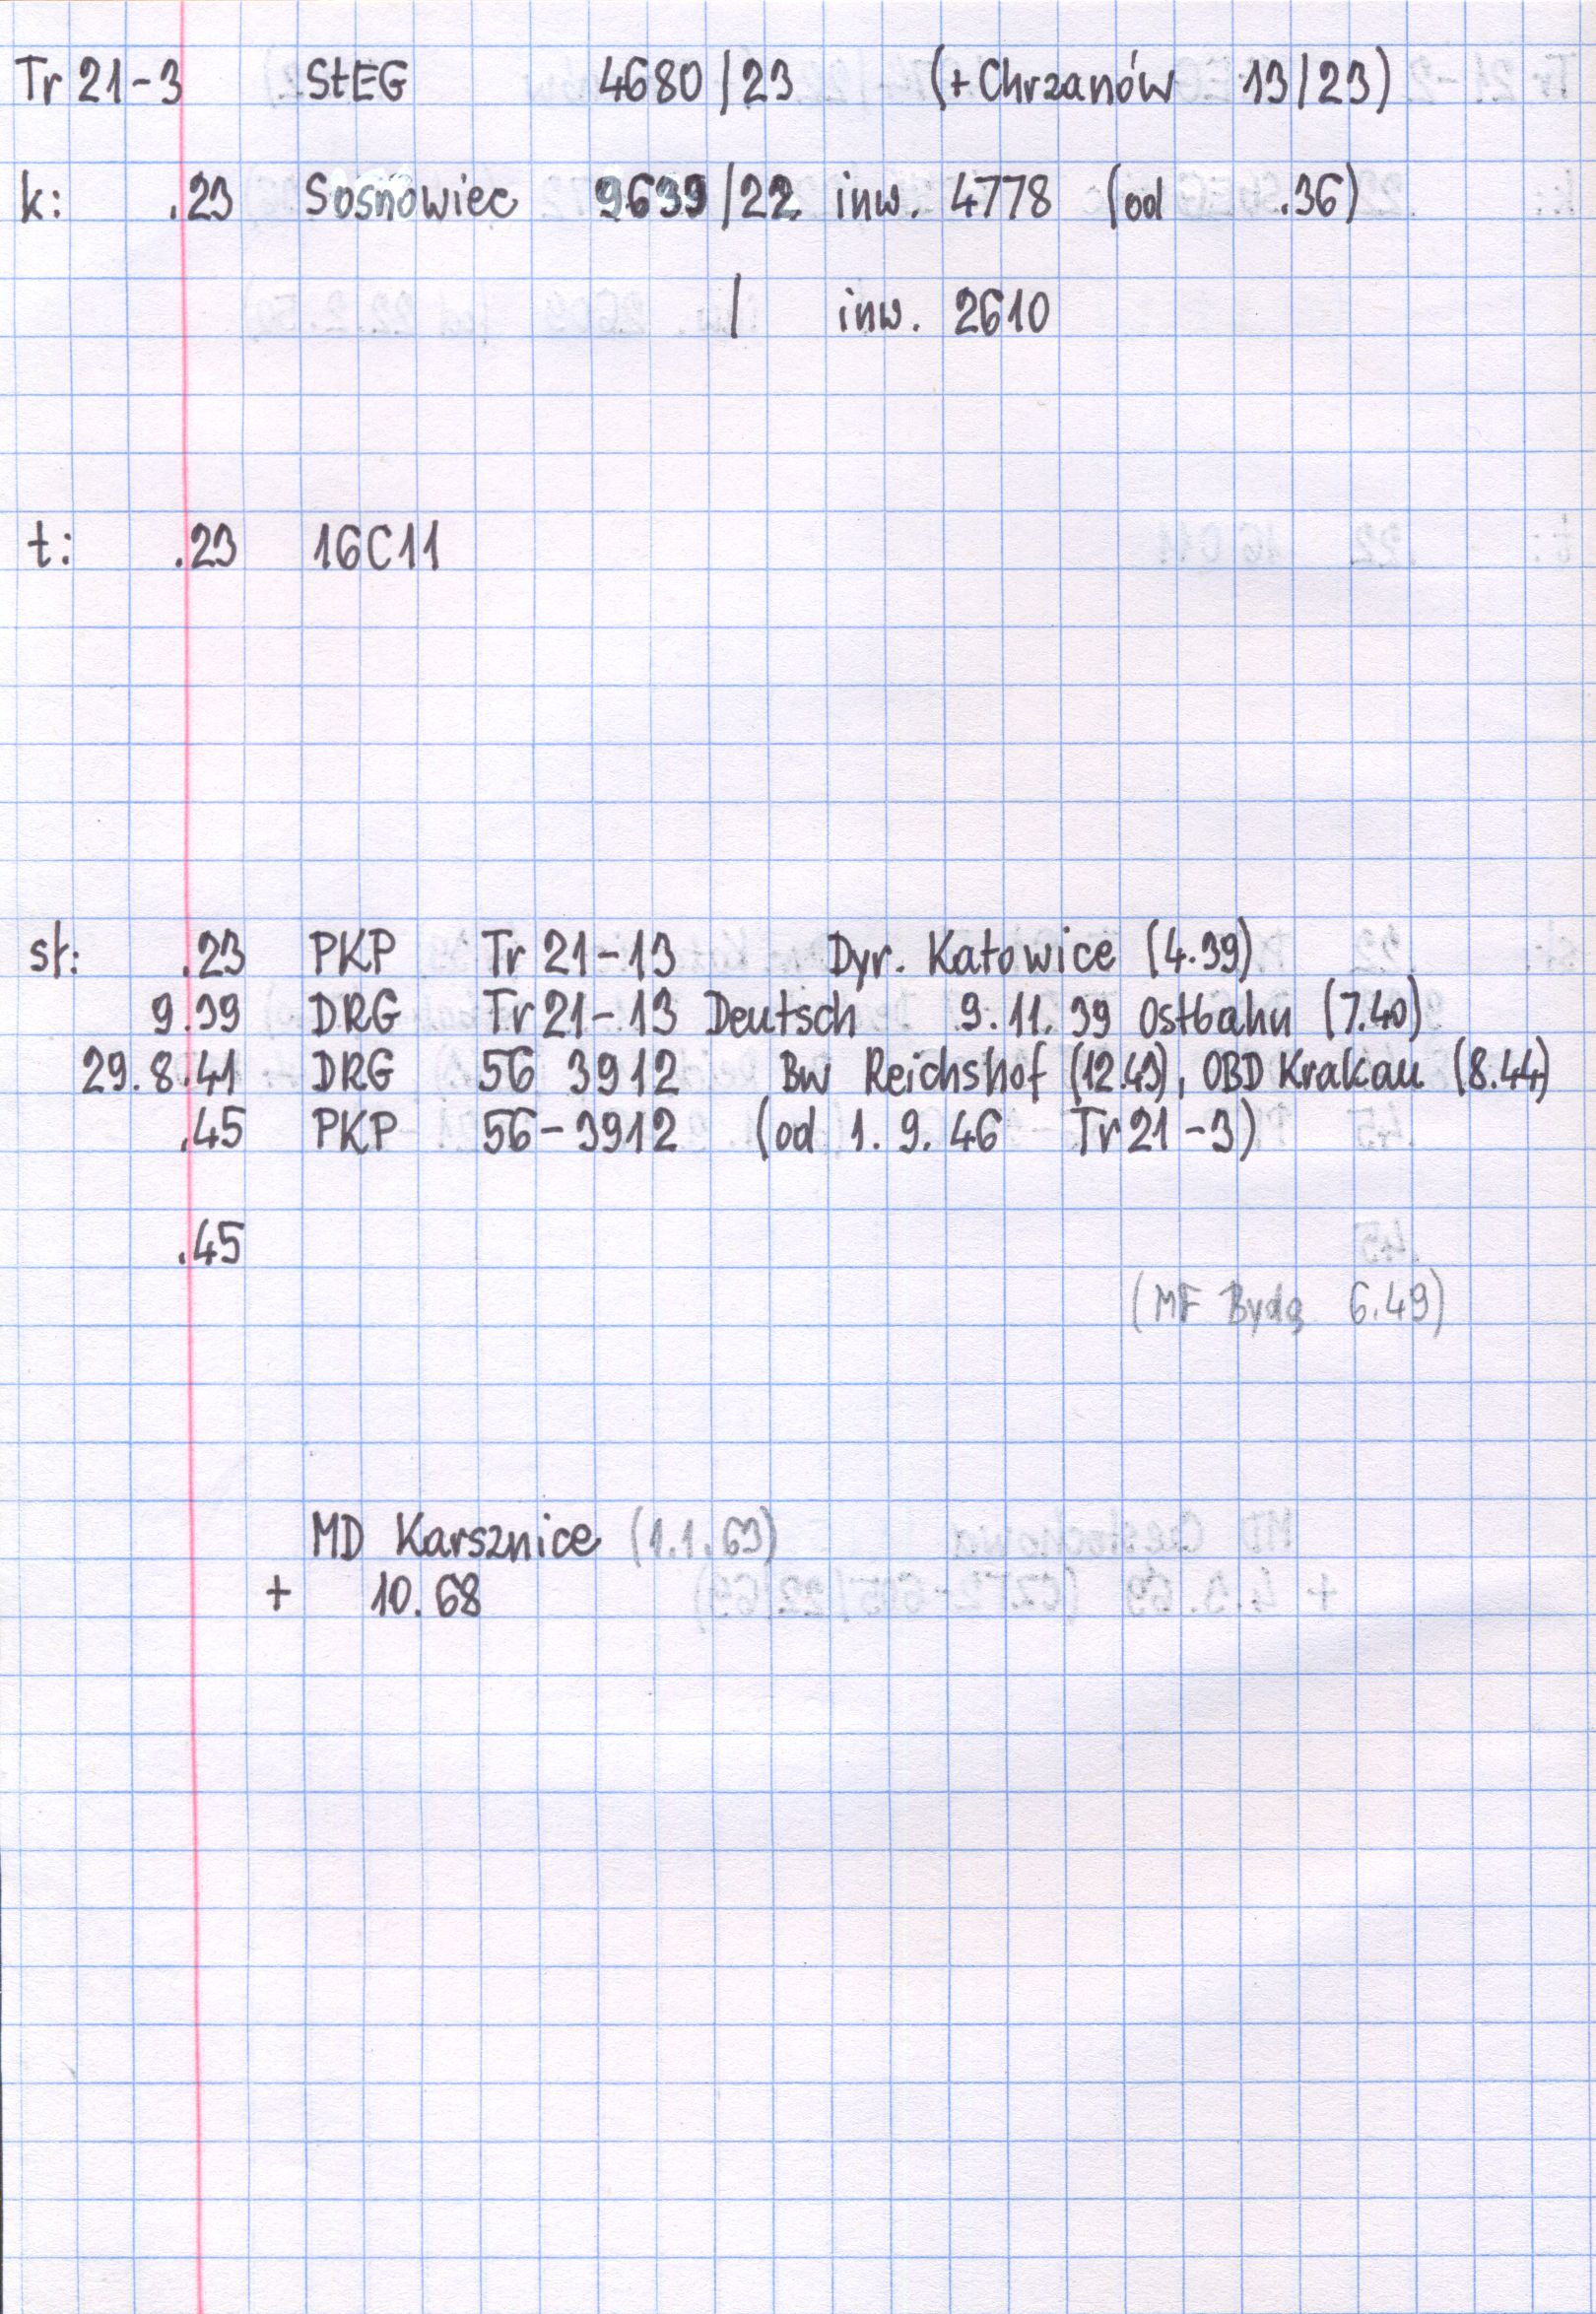 Tr 21-3 StEG 4680/23 (+Chrzanów 13/23)
k: .23 Sosnowiec 9639/22 inw. 4778 (od .36)
/ inw. 2610
t: .23 16C11
st: .23 PKP Tr 21-13 Dyr. Katowice (4.39)
9.39 DRG Tr 21-13 Deutsch 9.11.39 Ostbahn (7.40)
29.8.41 DRG 56 3912 Bw Reichshof (12.43), OBD Krakau (8.44)
.45 PKP 56-3912 (od 1.9.46 Tr 21-3)
.45
(MF Bydg 6.49)
MD Karsznice (1.1.63)
+ 10.68